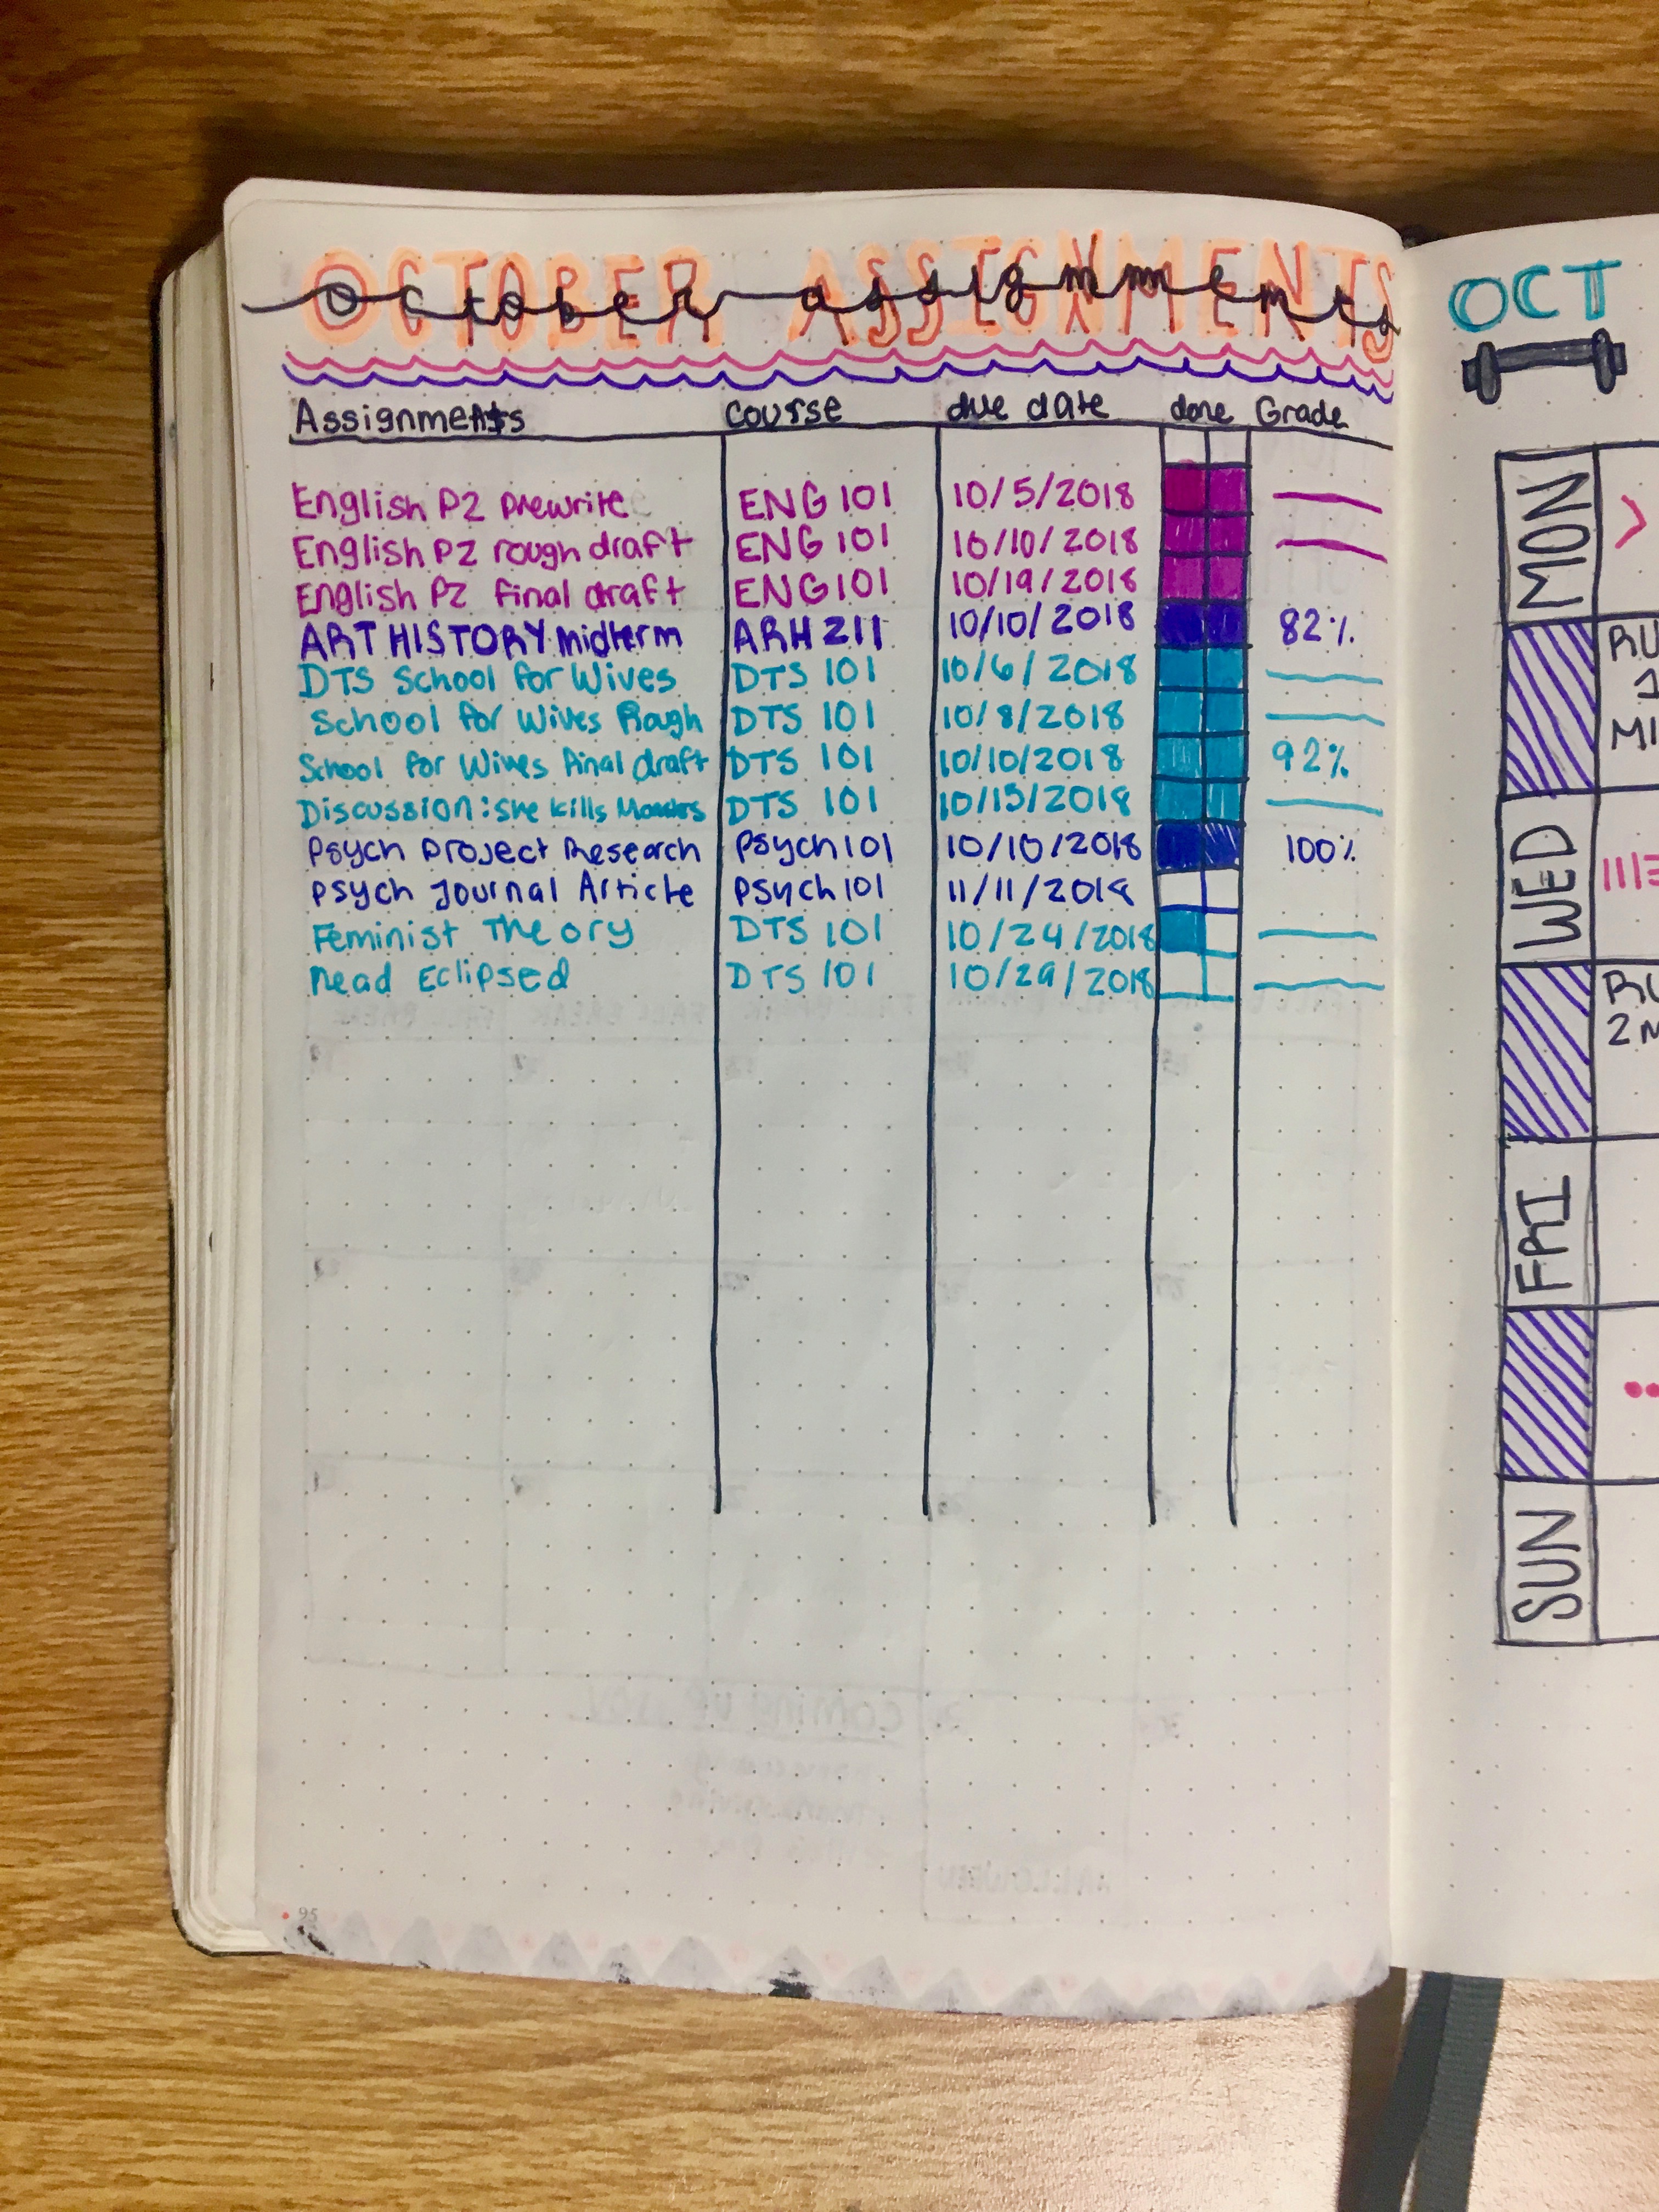 OCTOBER ASSIGNMENTS
october assignments
Assignments course due date done Grade
English P2 prewrite ENG 101 10/5/2018
English P2 rough draft ENG 101 10/10/2018
English P2 final draft ENG 101 10/19/2018
ART HISTORY midterm ARH 211 10/10/2018 82%
DTS School for Wives DTS 101 10/6/2018
School for Wives Rough DTS 101 10/8/2018
School for Wives final draft DTS 101 10/10/2018 92%
Discussion: She Kills DTS 101 10/15/2018
Psych Project Research Psych 101 10/10/2018 100%
Psych Journal Article Psych 101 11/11/2018
Feminist Theory DTS 101 10/24/2018
Read Eclipsed DTS 101 10/29/2018
95
OCT
MON
RU
1
MI
WED
RU
2 M
FRI
SUN